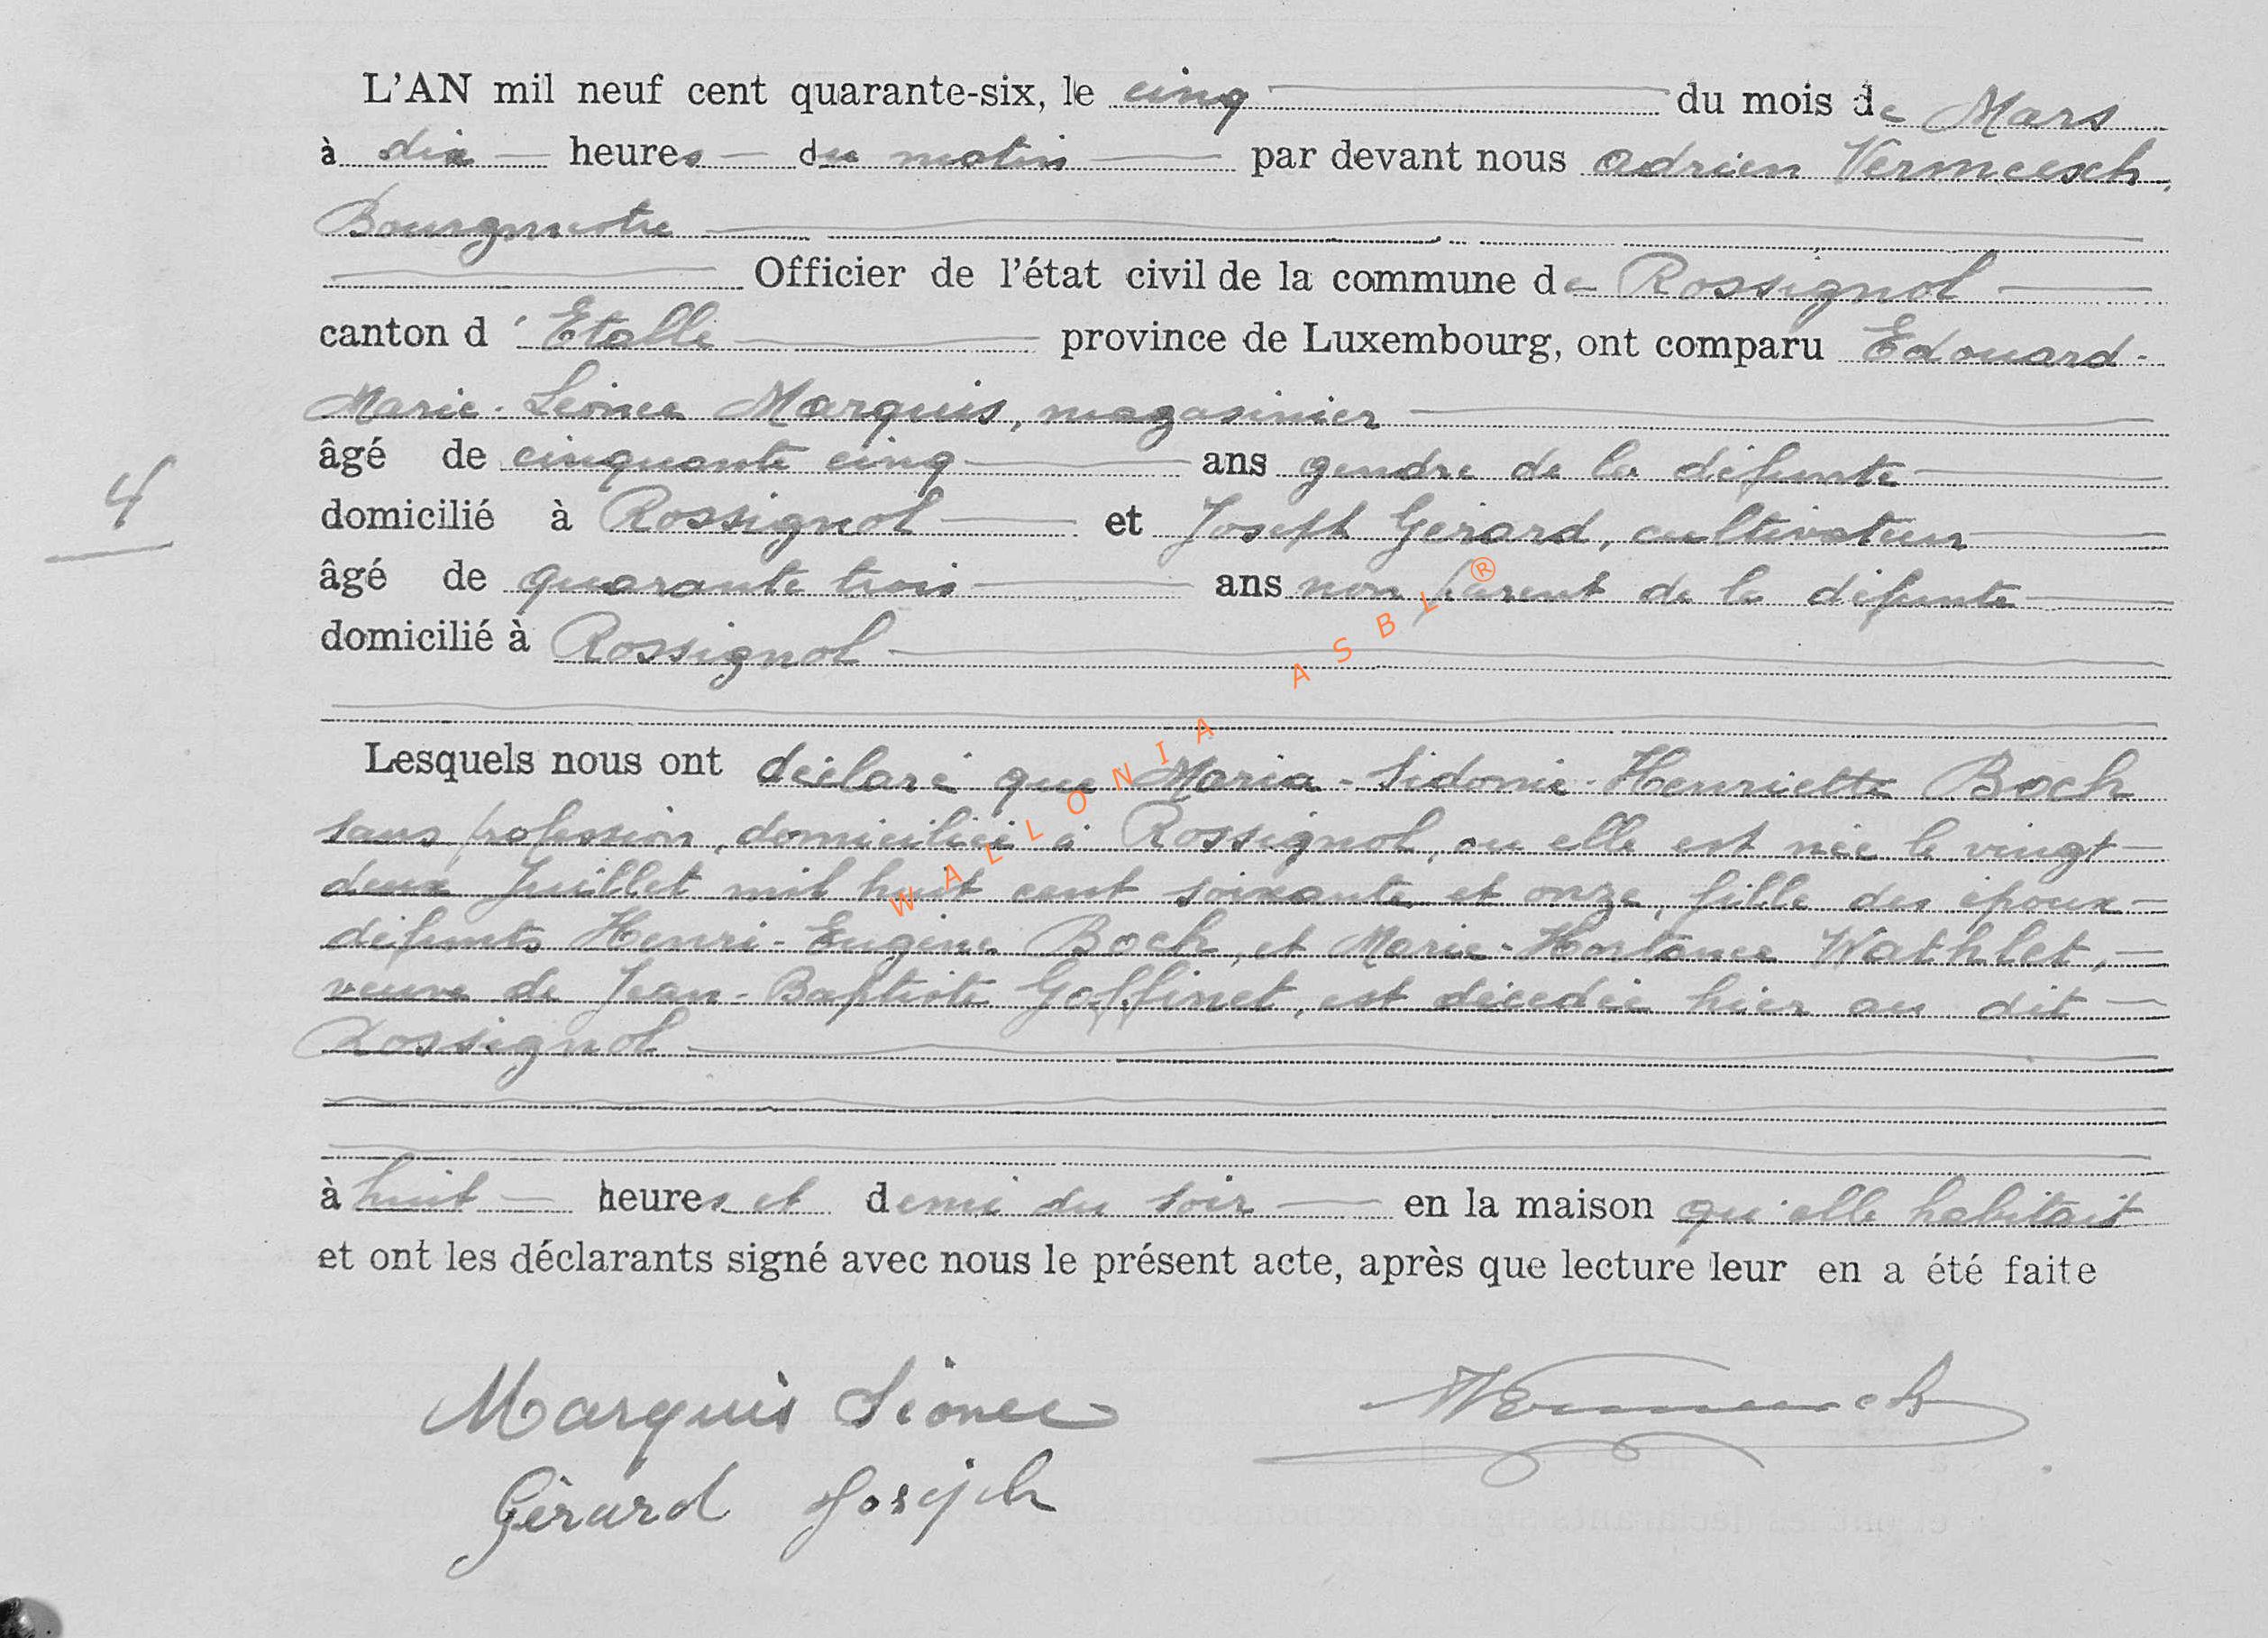 L'AN mil neuf cent quarante-six, le cinq du mois de Mars
à dix heures du matin par devant nous Adrien Vermeesch,
Bourgmestre
Officier de l'état civil de la commune de Rossignol
canton d'Etalle province de Luxembourg, ont comparu Edouard-
Marie-Léonce Marquis, magasinier
âgé de cinquante cinq ans gendre de la défunte
4
domicilié à Rossignol et Joseph Gérard, cultivateur
âgé de quarante trois ans non parent de la défunte
domicilié à Rossignol
Lesquels nous ont déclaré que Maria-Sidonie-Henriette Boch
sans profession, domiciliée à Rossignol, ou elle est née le vingt-
deux Juillet mil huit cent soixante et onze, fille des époux
défunts Henri-Eugène Boch, et Marie-Hortance Wathlet,
veuve de Jean-Baptiste Goffinet, est décédée hier au dit
Rossignol
à huit heures et demi du soir en la maison qu'elle habitait
et ont les déclarants signé avec nous le présent acte, après que lecture leur en a été faite
Marquis Léonce
Vermeesch
Gérard Joseph
WALLONIA ASBL ®